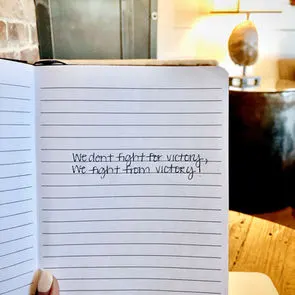 We don't fight for victory,
We fight from victory!